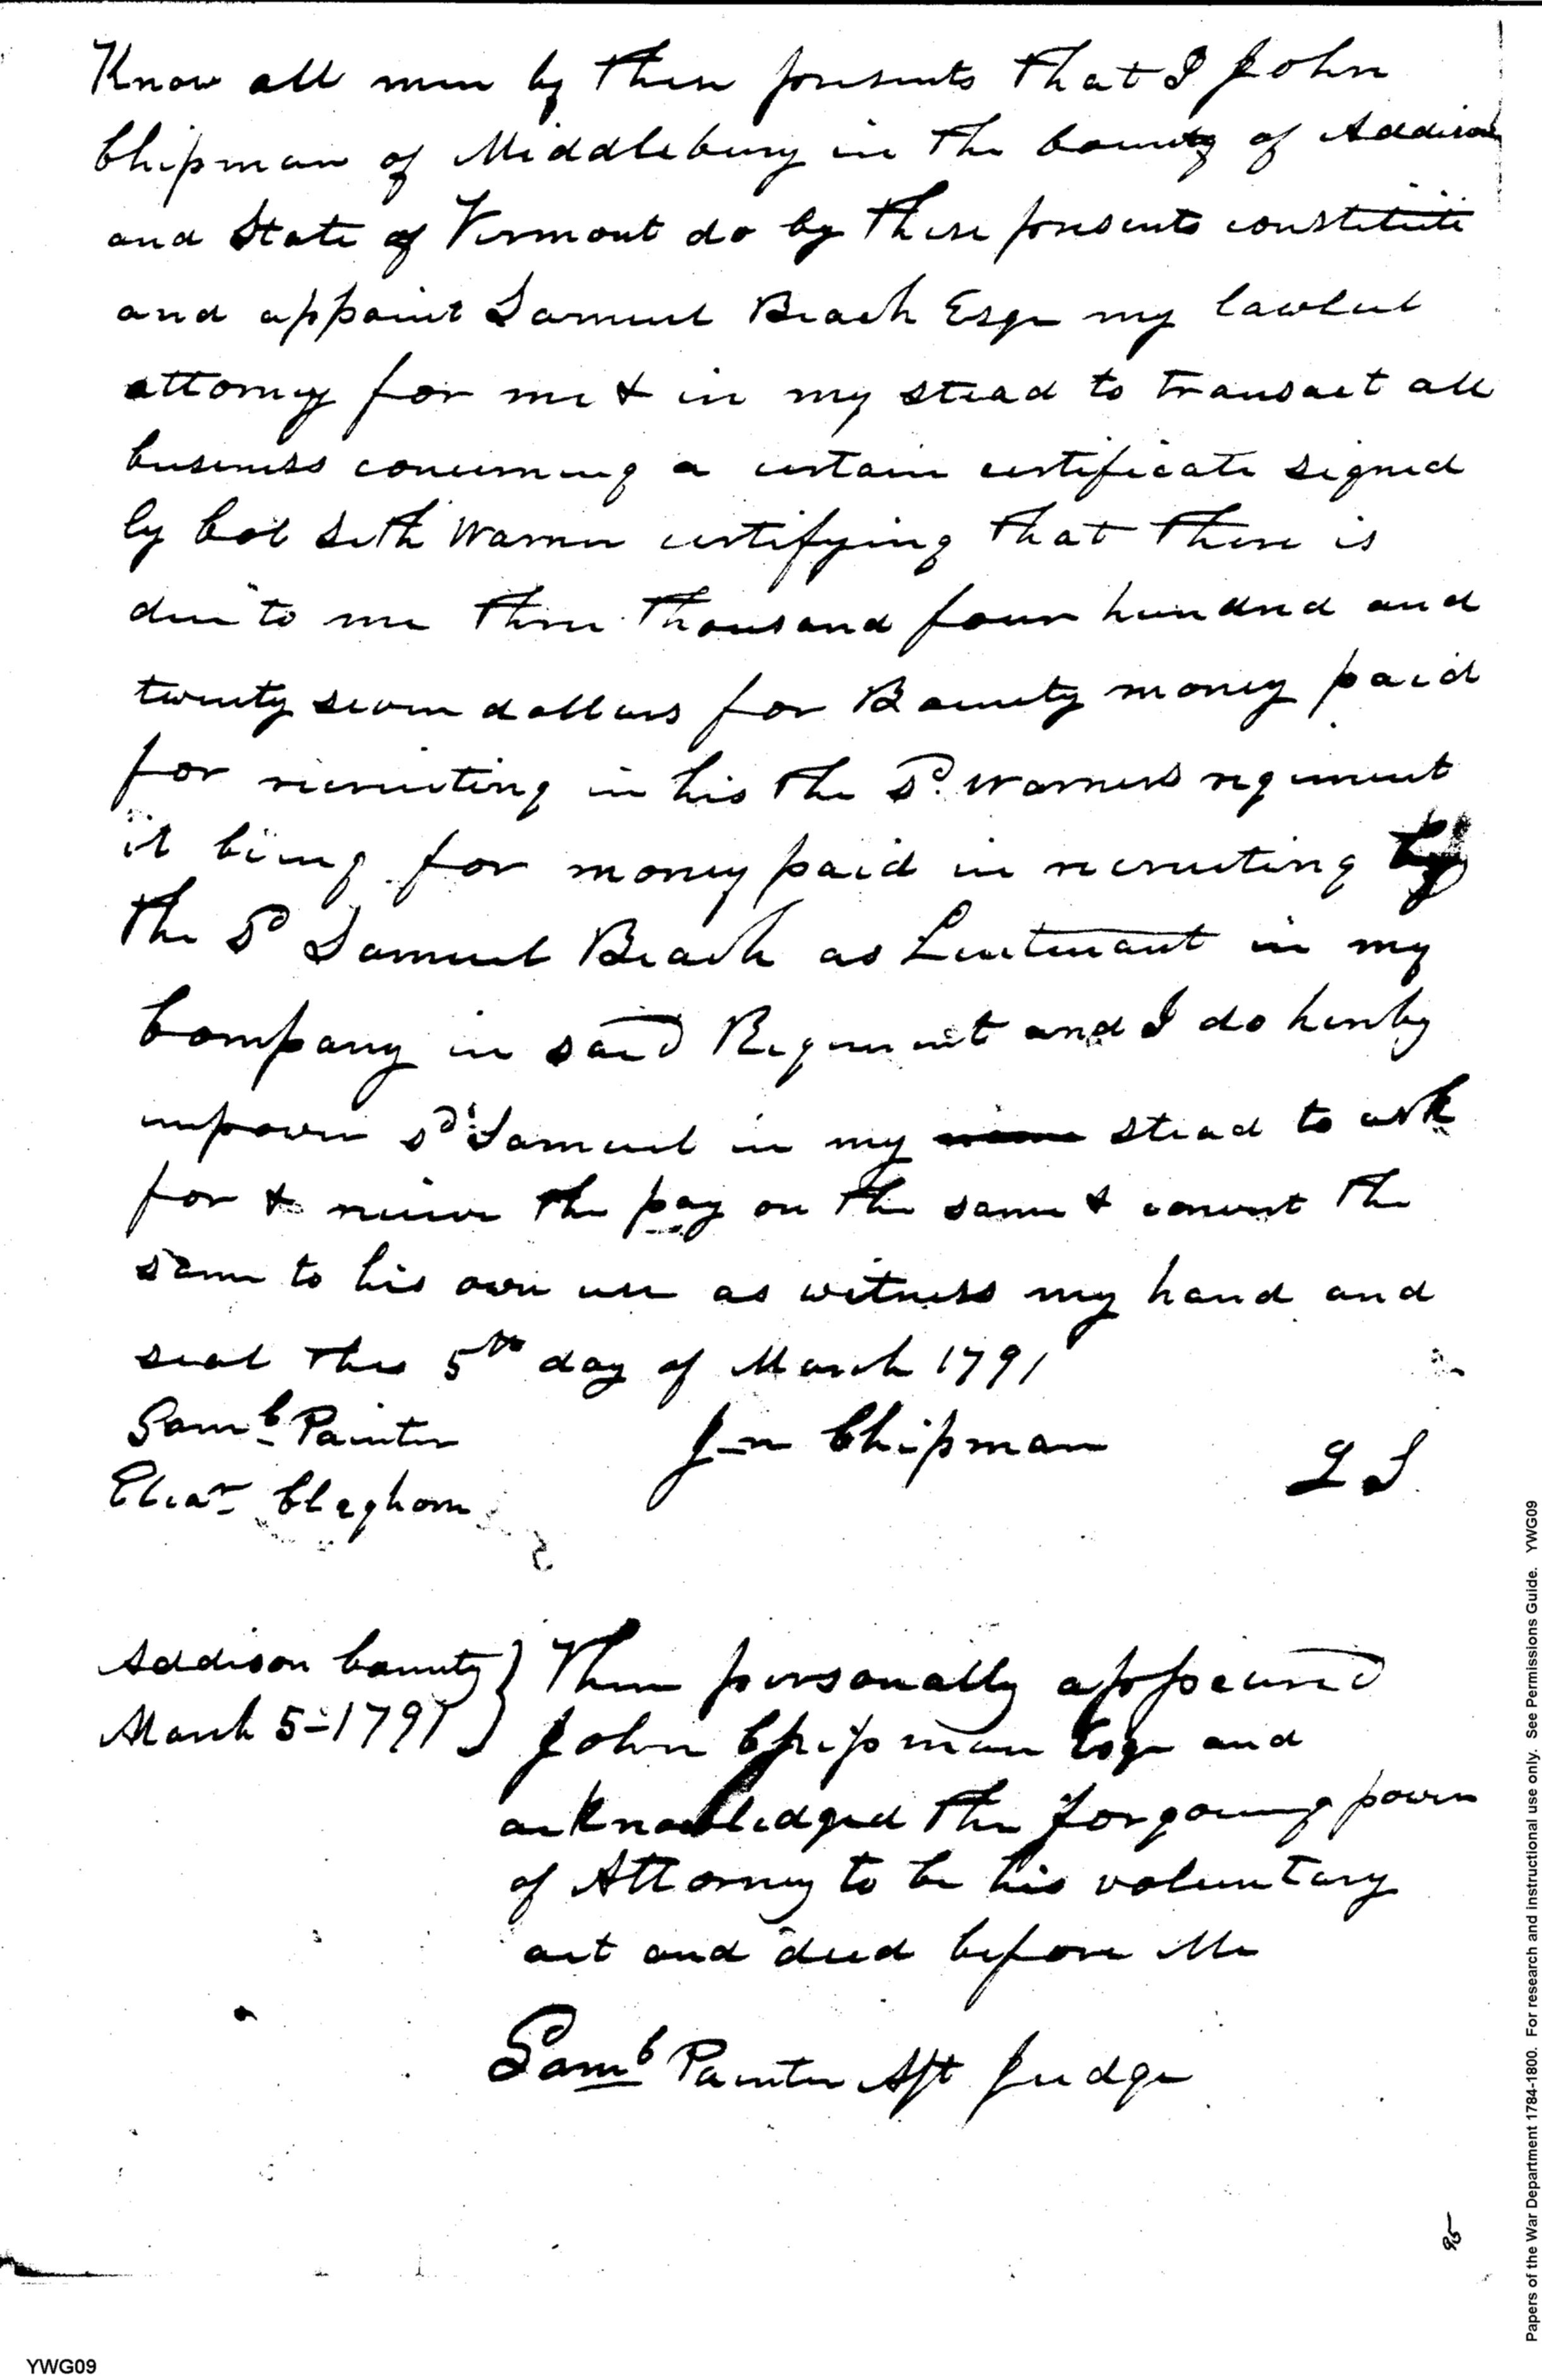 Know all men by these presents that I John
Chipman of Middlebury in the County of Addison
and State of Vermont do by these presents constitute
and appoint Samuel Beach Esqr my lawful
attorney for me & in my stead to transact all
business concerning a certain certificate signed
by Col Seth Warner certifying that there is
due to me three thousand four hundred and
twenty seven dollars for Bounty money paid
for recruiting in his the Sd. Warners regiment
it being for money paid in recruiting by
the Sd Samuel Beach as Lieutenant in my
Company in said Regiment and I do hereby
impower sd Samuel in my stead to ask
for & receive the pay on the same & convert the
same to his own use as witness my hand and
seal this 5th day of March 1791
Saml Painter
Jn Chipman
L S
Elear Cleghorn
Addison County
March 5-1791
Then personally appeared
John Chipman Esqr and
acknowledged the forgoing power
of Attorney to be his voluntary
act and deed before Me
Saml Painter Ast Judge
95
Papers of the War Department 1784-1800. For research and instructional use only. See Permissions Guide. YWG09
YWG09